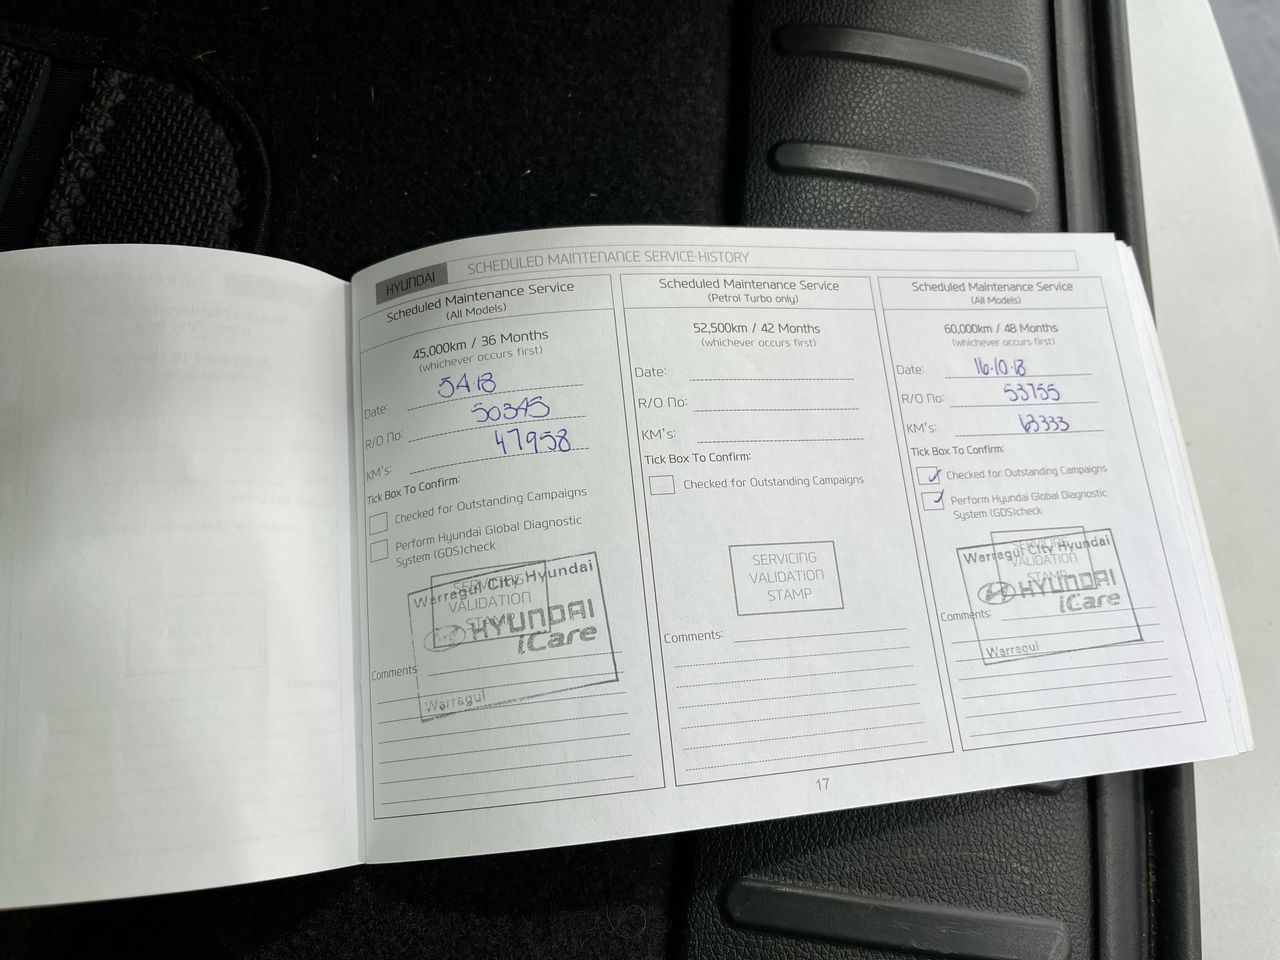 HYUNDAI SCHEDULED MAINTENANCE SERVICE HISTORY
Scheduled Maintenance Service
(All Models)
45,000km / 36 Months
(whichever occurs first)
Date: 5.4.18
R/O No: 50345
KM's: 47958
Tick Box To Confirm:
Checked for Outstanding Campaigns
Perform Hyundai Global Diagnostic
System (GDS)check
SERVICING
VALIDATION
STAMP
Warragul City Hyundai
HYUNDAI
iCare
Warragul
Comments:
Scheduled Maintenance Service
(Petrol Turbo only)
52,500km / 42 Months
(whichever occurs first)
Date:
R/O No:
KM's:
Tick Box To Confirm:
Checked for Outstanding Campaigns
SERVICING
VALIDATION
STAMP
Comments:
Scheduled Maintenance Service
(All Models)
60,000km / 48 Months
(whichever occurs first)
Date: 16.10.18
R/O No: 53755
KM's: 63333
Tick Box To Confirm:
Checked for Outstanding Campaigns
Perform Hyundai Global Diagnostic
System (GDS)check
SERVICING
VALIDATION
STAMP
Warragul City Hyundai
HYUNDAI
iCare
Warragul
Comments:
17